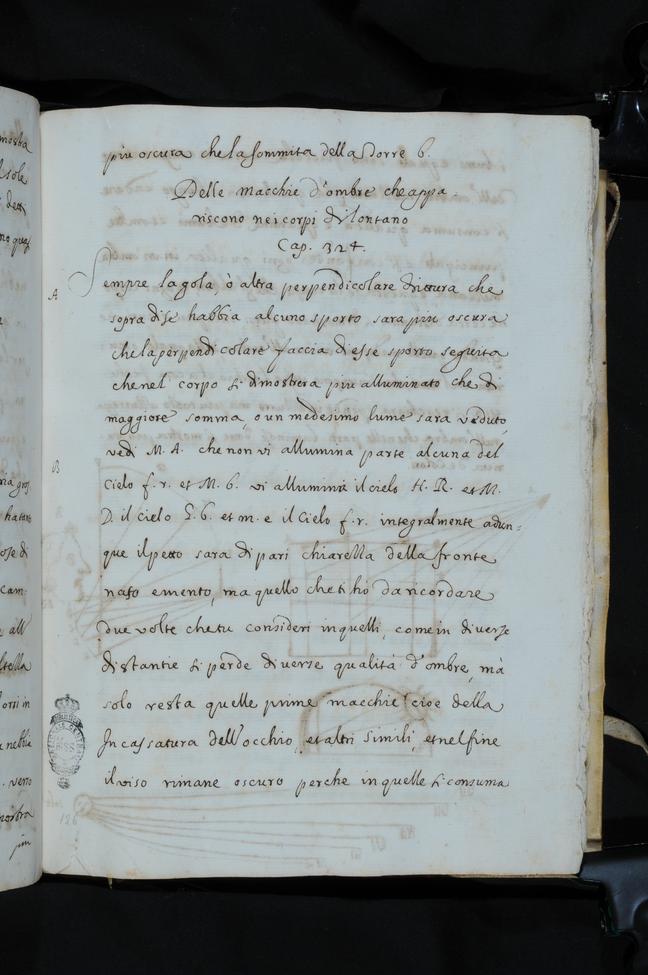 piu oscura che la sommita della Torre b.
Delle macchie d'ombre che appa-
riscono nei corpi di lontano
Cap. 324.
A Sempre la gola, ò altra perpendicolare dirittura che
sopra di se habbia alcuno sporto sara piu oscura
che la perpendicolare faccia di esse sporto seguita
che nel corpo si dimostrera piu alluminato che di
maggiore somma, o un medesimo lume sara veduto,
vedi M. A. che non vi allumina parte alcuna del
B Cielo f. r. et M. b. vi allumina il cielo H. R. et M.
D. il cielo G. b. et m. e il Cielo f. r. integralmente adun=
que il petto sara di pari chiarella della fronte
naso e mento, ma quello che ti hò da ricordare
due volte che tu consideri in quelli, come in diverse
distantie si perde diverse qualità d'ombre, mà
solo resta quelle prime macchie cioe della
Incassatura dell'occhio, et altri simili, et nel fine
il viso rimane oscuro perche in quelle si consuma
126